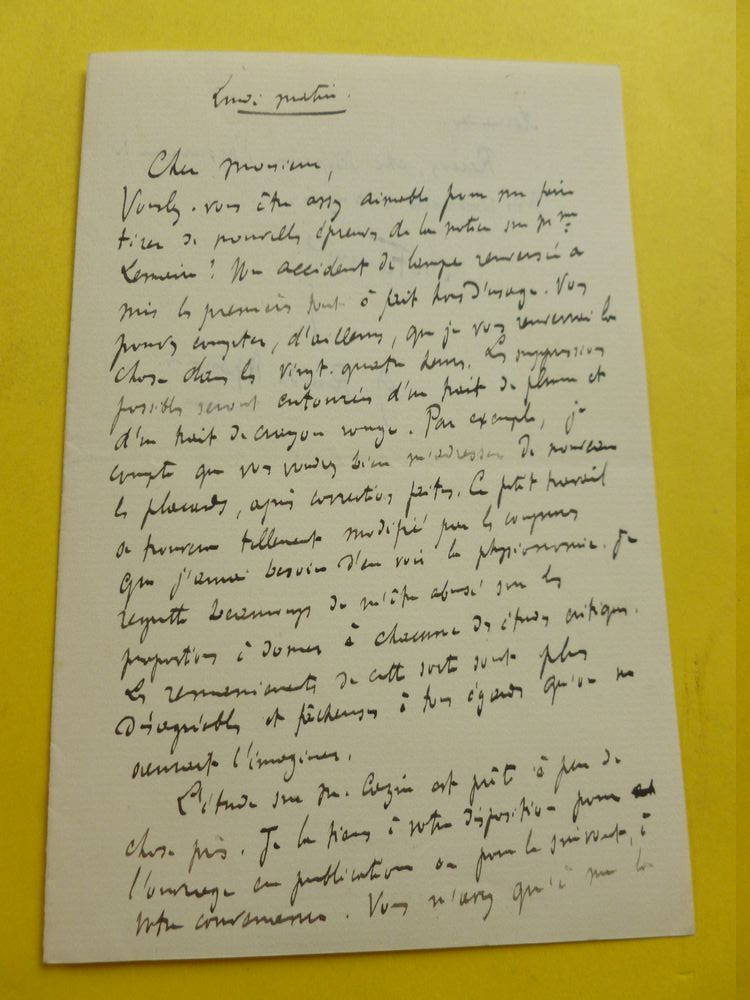 Lundi matin.
Cher monsieur,
Voulez-vous être assez aimable pour me faire
tirer de nouvelles épreuves de la notice sur Mme
Lemaire ? Un accident de lampe renversée a
mis les premières tout à fait hors d'usage. Vous
pouvez compter, d'ailleurs, que je vous renverrai la
chose dans les vingt-quatre heures. Les suppressions
possibles seront entourées d'un trait de plume et
d'un trait de crayon rouge. Par exemple, je
compte que vous voudrez bien m'adresser de nouveau
les placards, après corrections faites. Ce petit travail
se trouvera tellement modifié par les coupures
que j'aurai besoin d'en voir la physionomie. Je
regrette beaucoup de m'être abusé sur les
proportions à donner à chacune des études critiques.
Les remaniements de cette sorte sont plus
désagréables et fâcheuses à tous égards qu'on ne
saurait l'imaginer.
L'étude sur M. Cazin est prête à peu de
chose près. Je la tiens à votre disposition pour
l'ouvrage en publication ou pour le suivant, à
votre convenance. Vous n'avez qu'à me le